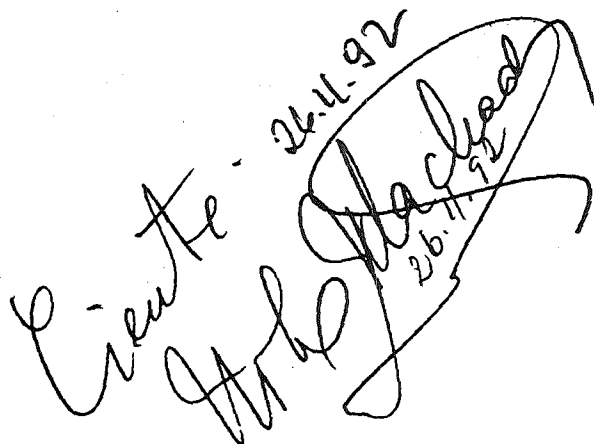 Ciente - 26.11.92
Machado
26.11.92